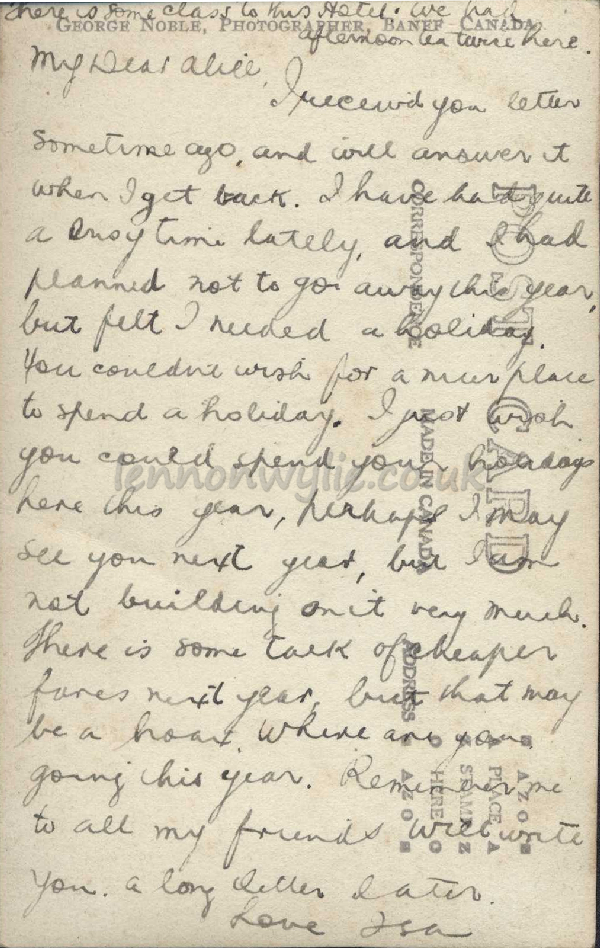 There is some class to this Hotel. We had
GEORGE NOBLE, PHOTOGRAPHER, BANFF CANADA
afternoon tea twice here.
My Dear Alice,
I receiv'd you letter
sometime ago, and will answer it
when I get back. I have had quite
a busy time lately, and I had
planned not to go away this year,
but felt I needed a holiday.
You couldn't wish for a nicer place
to spend a holiday. I just wish
you could spend your holidays
here this year, perhaps I may
see you next year, but I am
not building on it very much.
There is some talk of cheaper
fares next year, but that may
be a hoax. Where are you
going this year. Remember me
to all my friends Will write
you. a long letter later.
Love Isa
POST CARD
CORRESPONDENCE
MADE IN CANADA
ADDRESS
AZO
PLACE
STAMP
HERE
AZO
lennonwylie.co.uk